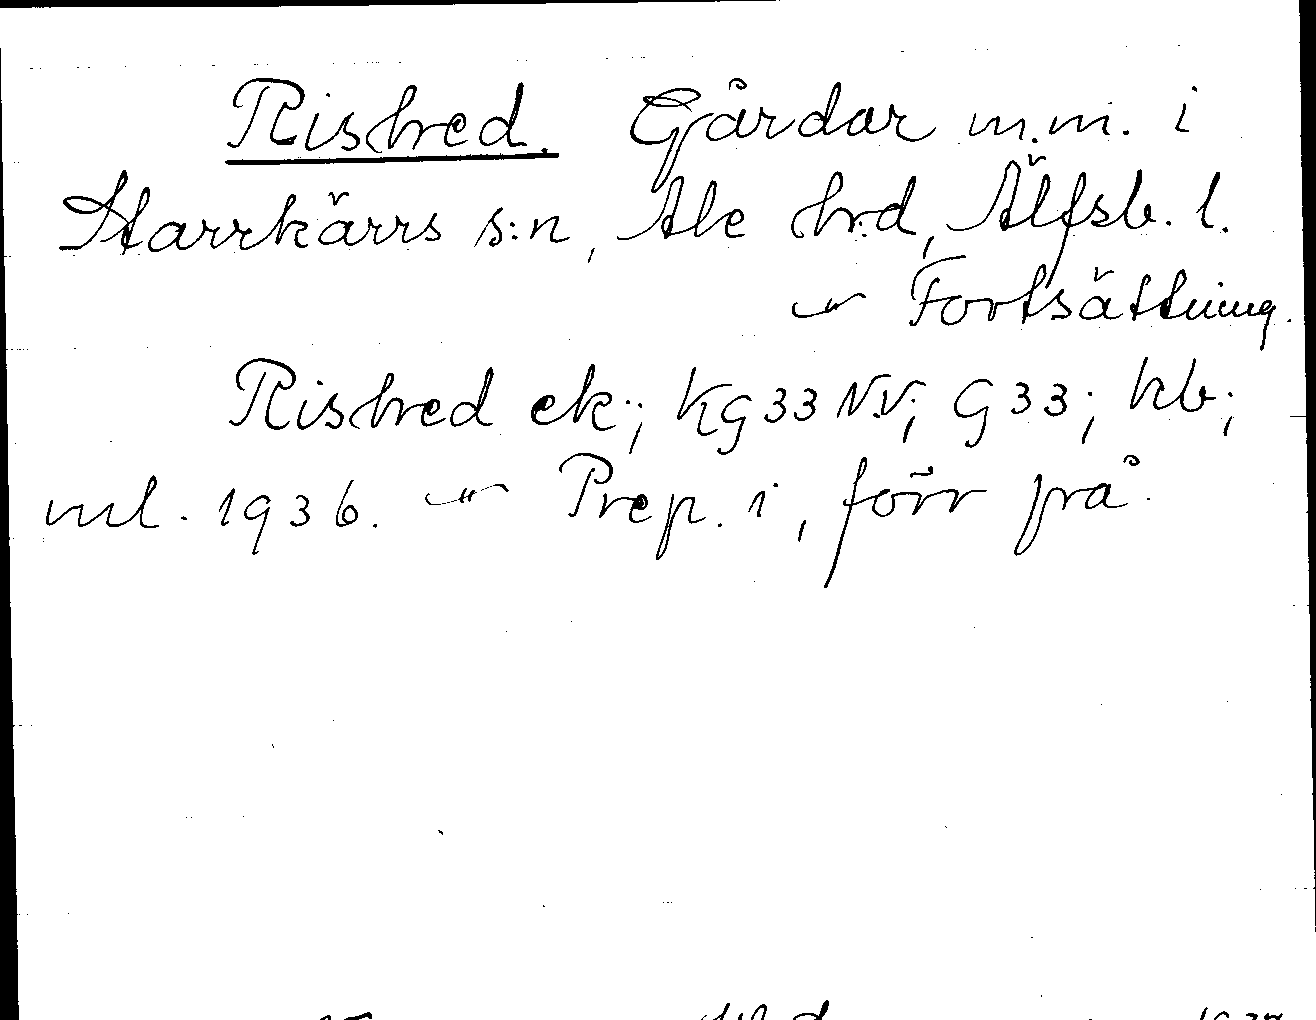 Rished. Gårdar m.m. i
Starrkärrs s:n, Ale hrd, Älfsb. l.
— Fortsättning.
Rished ek.; KG33NV; G33; kb;
ml. 1936. — Prep. i, förr på.